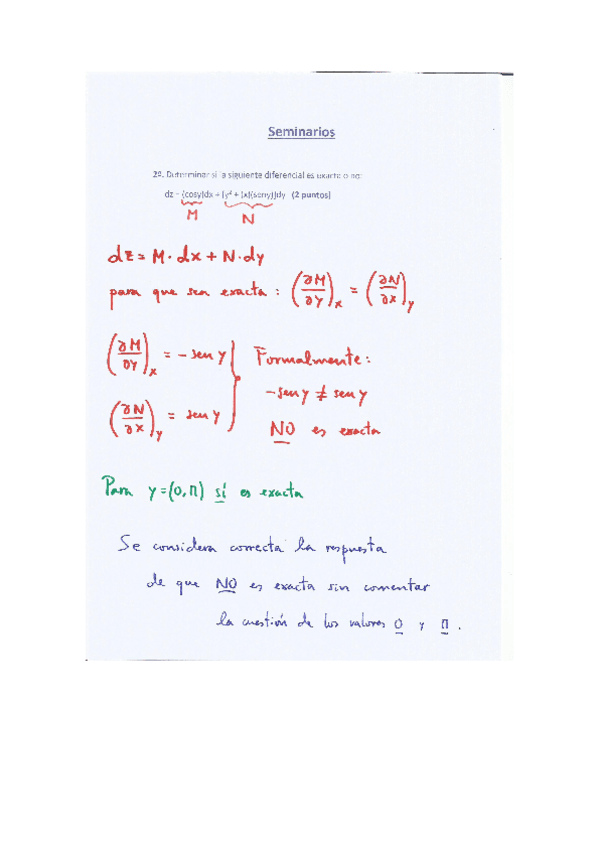 Seminarios
2º. Determinar si la siguiente diferencial es exacta o no:
dz = (cosy)dx + [y² + (x)(seny)]dy (2 puntos)
M N
dz = M · dx + N · dy
para que sea exacta : (∂M/∂y)x = (∂N/∂x)y
(∂M/∂y)x = - sen y
(∂N/∂x)y = sen y
Formalmente:
-sen y ≠ sen y
NO es exacta
Para y = (0, Π) sí es exacta
Se considera correcta la respuesta
de que NO es exacta sin comentar
la cuestión de los valores 0 y Π.